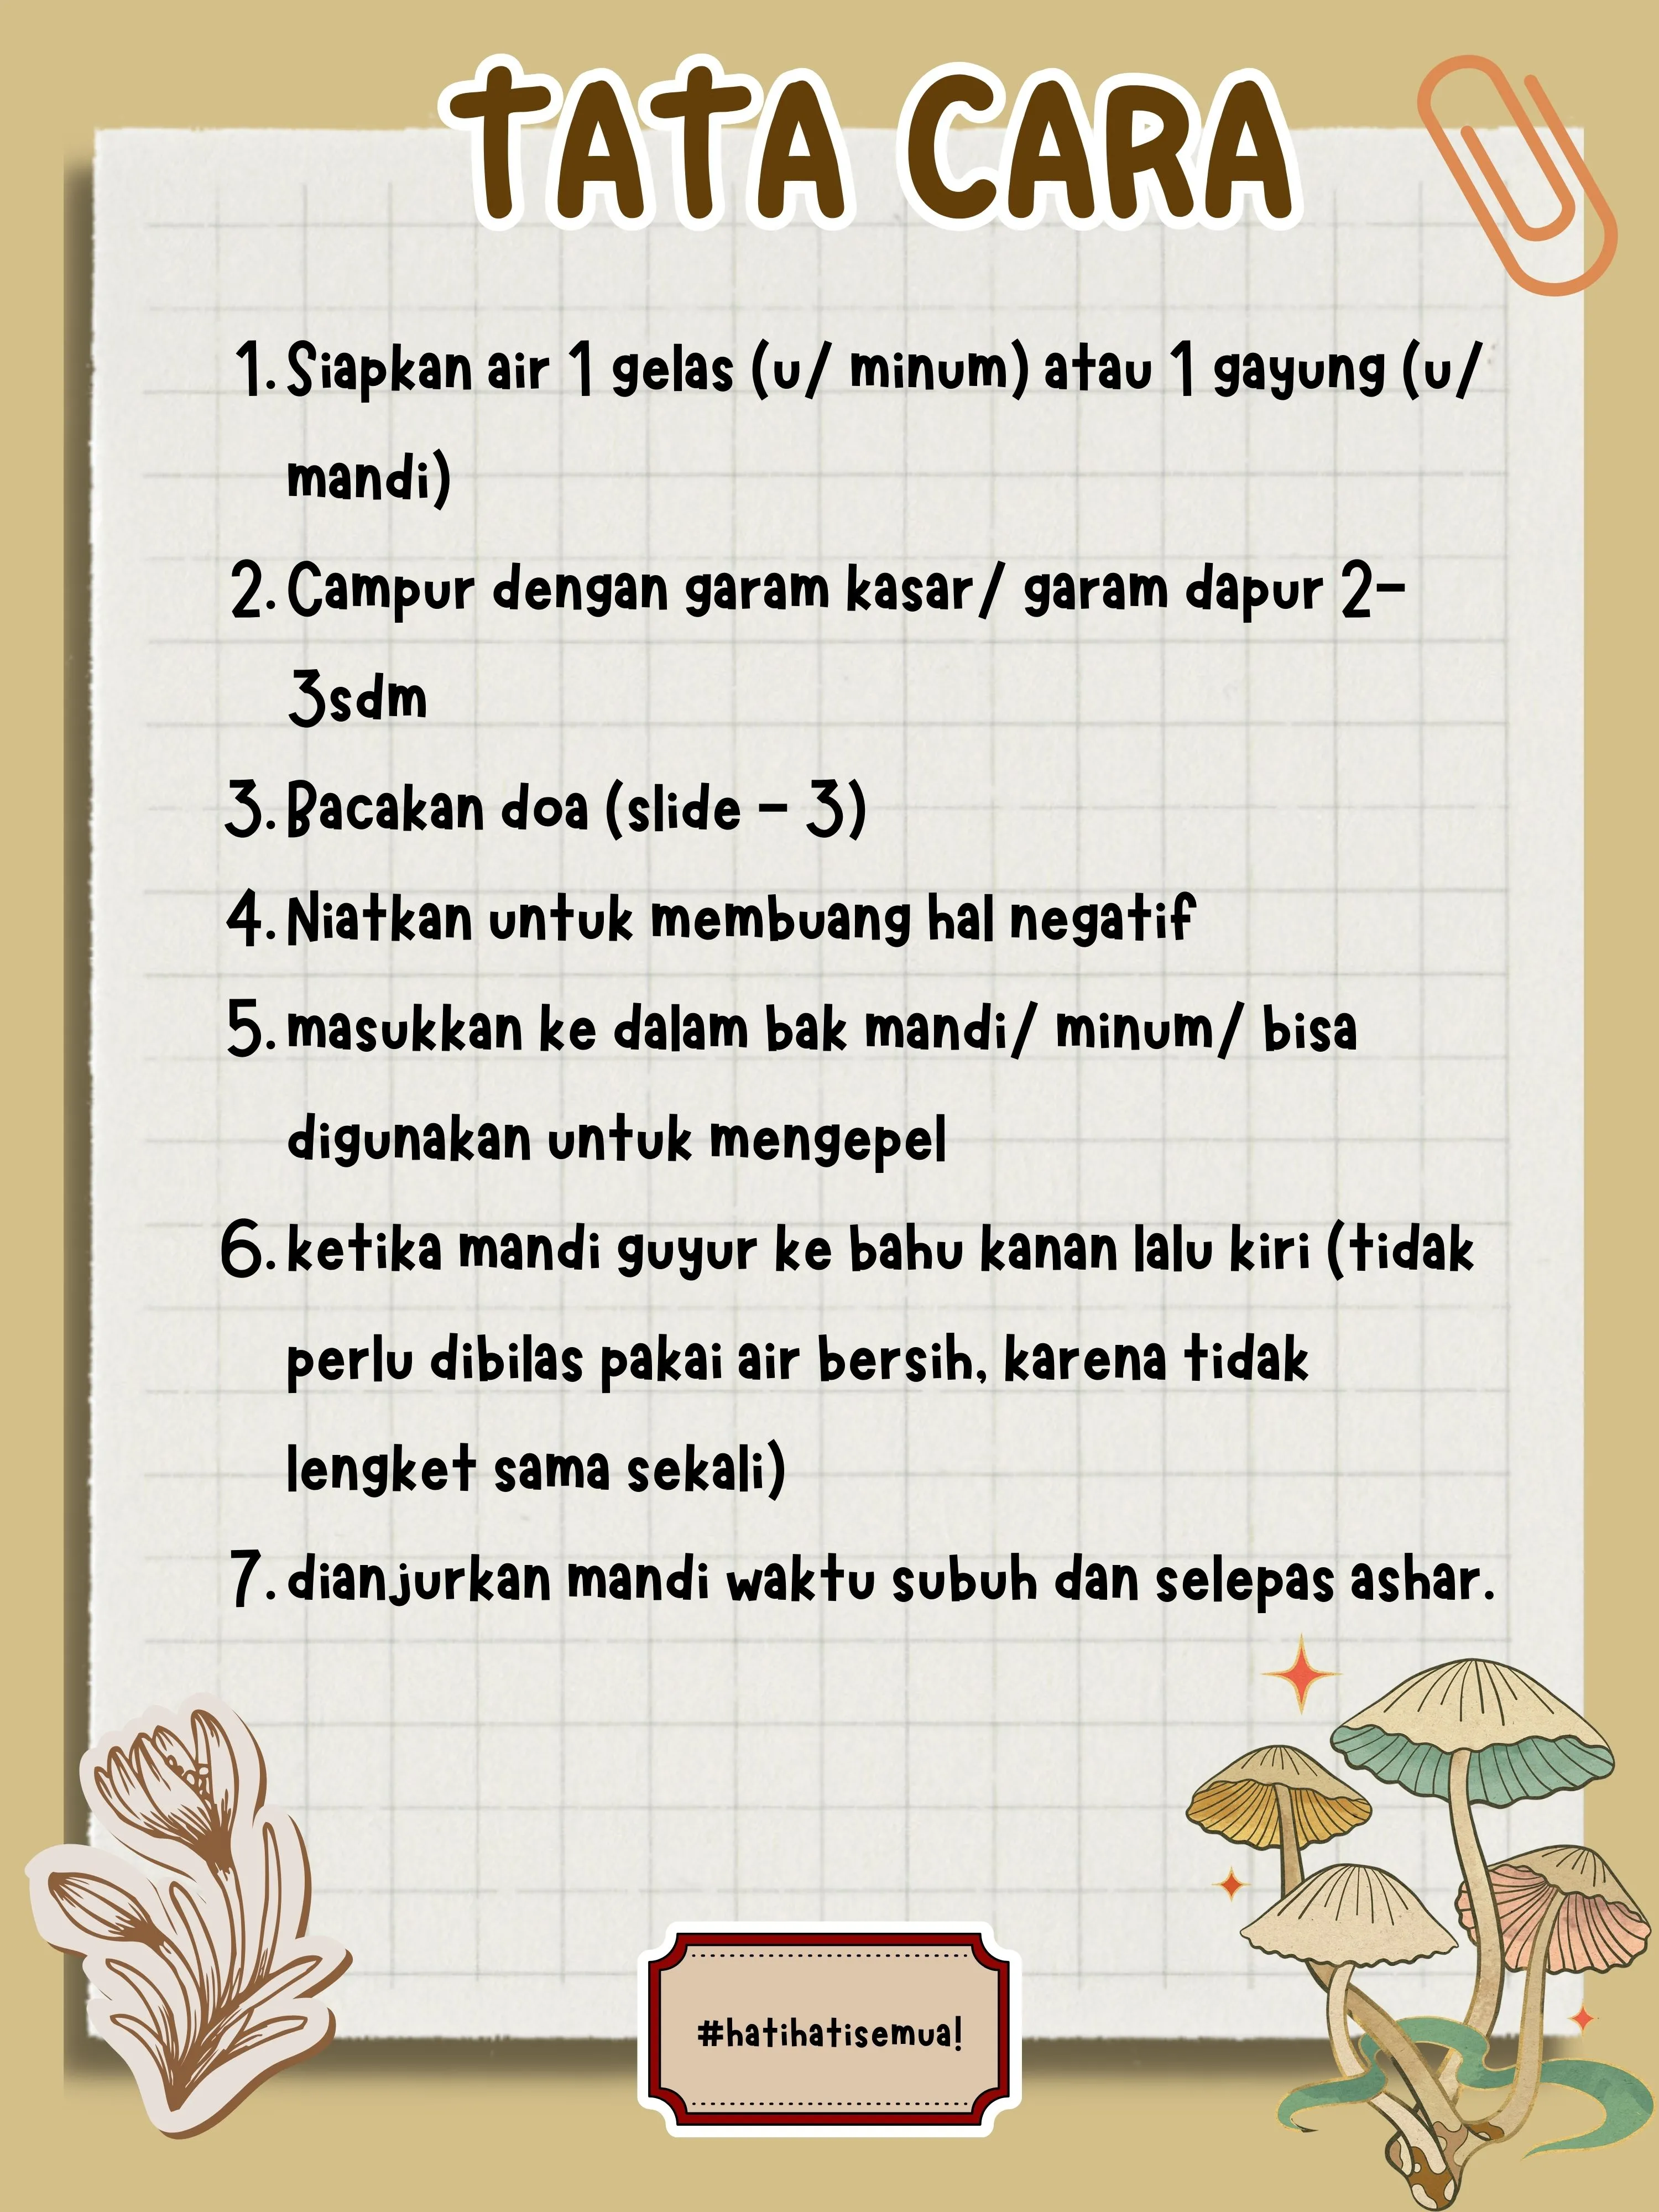 TATA CARA
1. Siapkan air 1 gelas (u/ minum) atau 1 gayung (u/
mandi)
2. Campur dengan garam kasar/ garam dapur 2-
3sdm
3. Bacakan doa (slide - 3)
4. Niatkan untuk membuang hal negatif
5. masukkan ke dalam bak mandi/ minum/ bisa
digunakan untuk mengepel
6. ketika mandi guyur ke bahu kanan lalu kiri (tidak
perlu dibilas pakai air bersih, karena tidak
lengket sama sekali)
7. dianjurkan mandi waktu subuh dan selepas ashar.
#hatihatisemua!